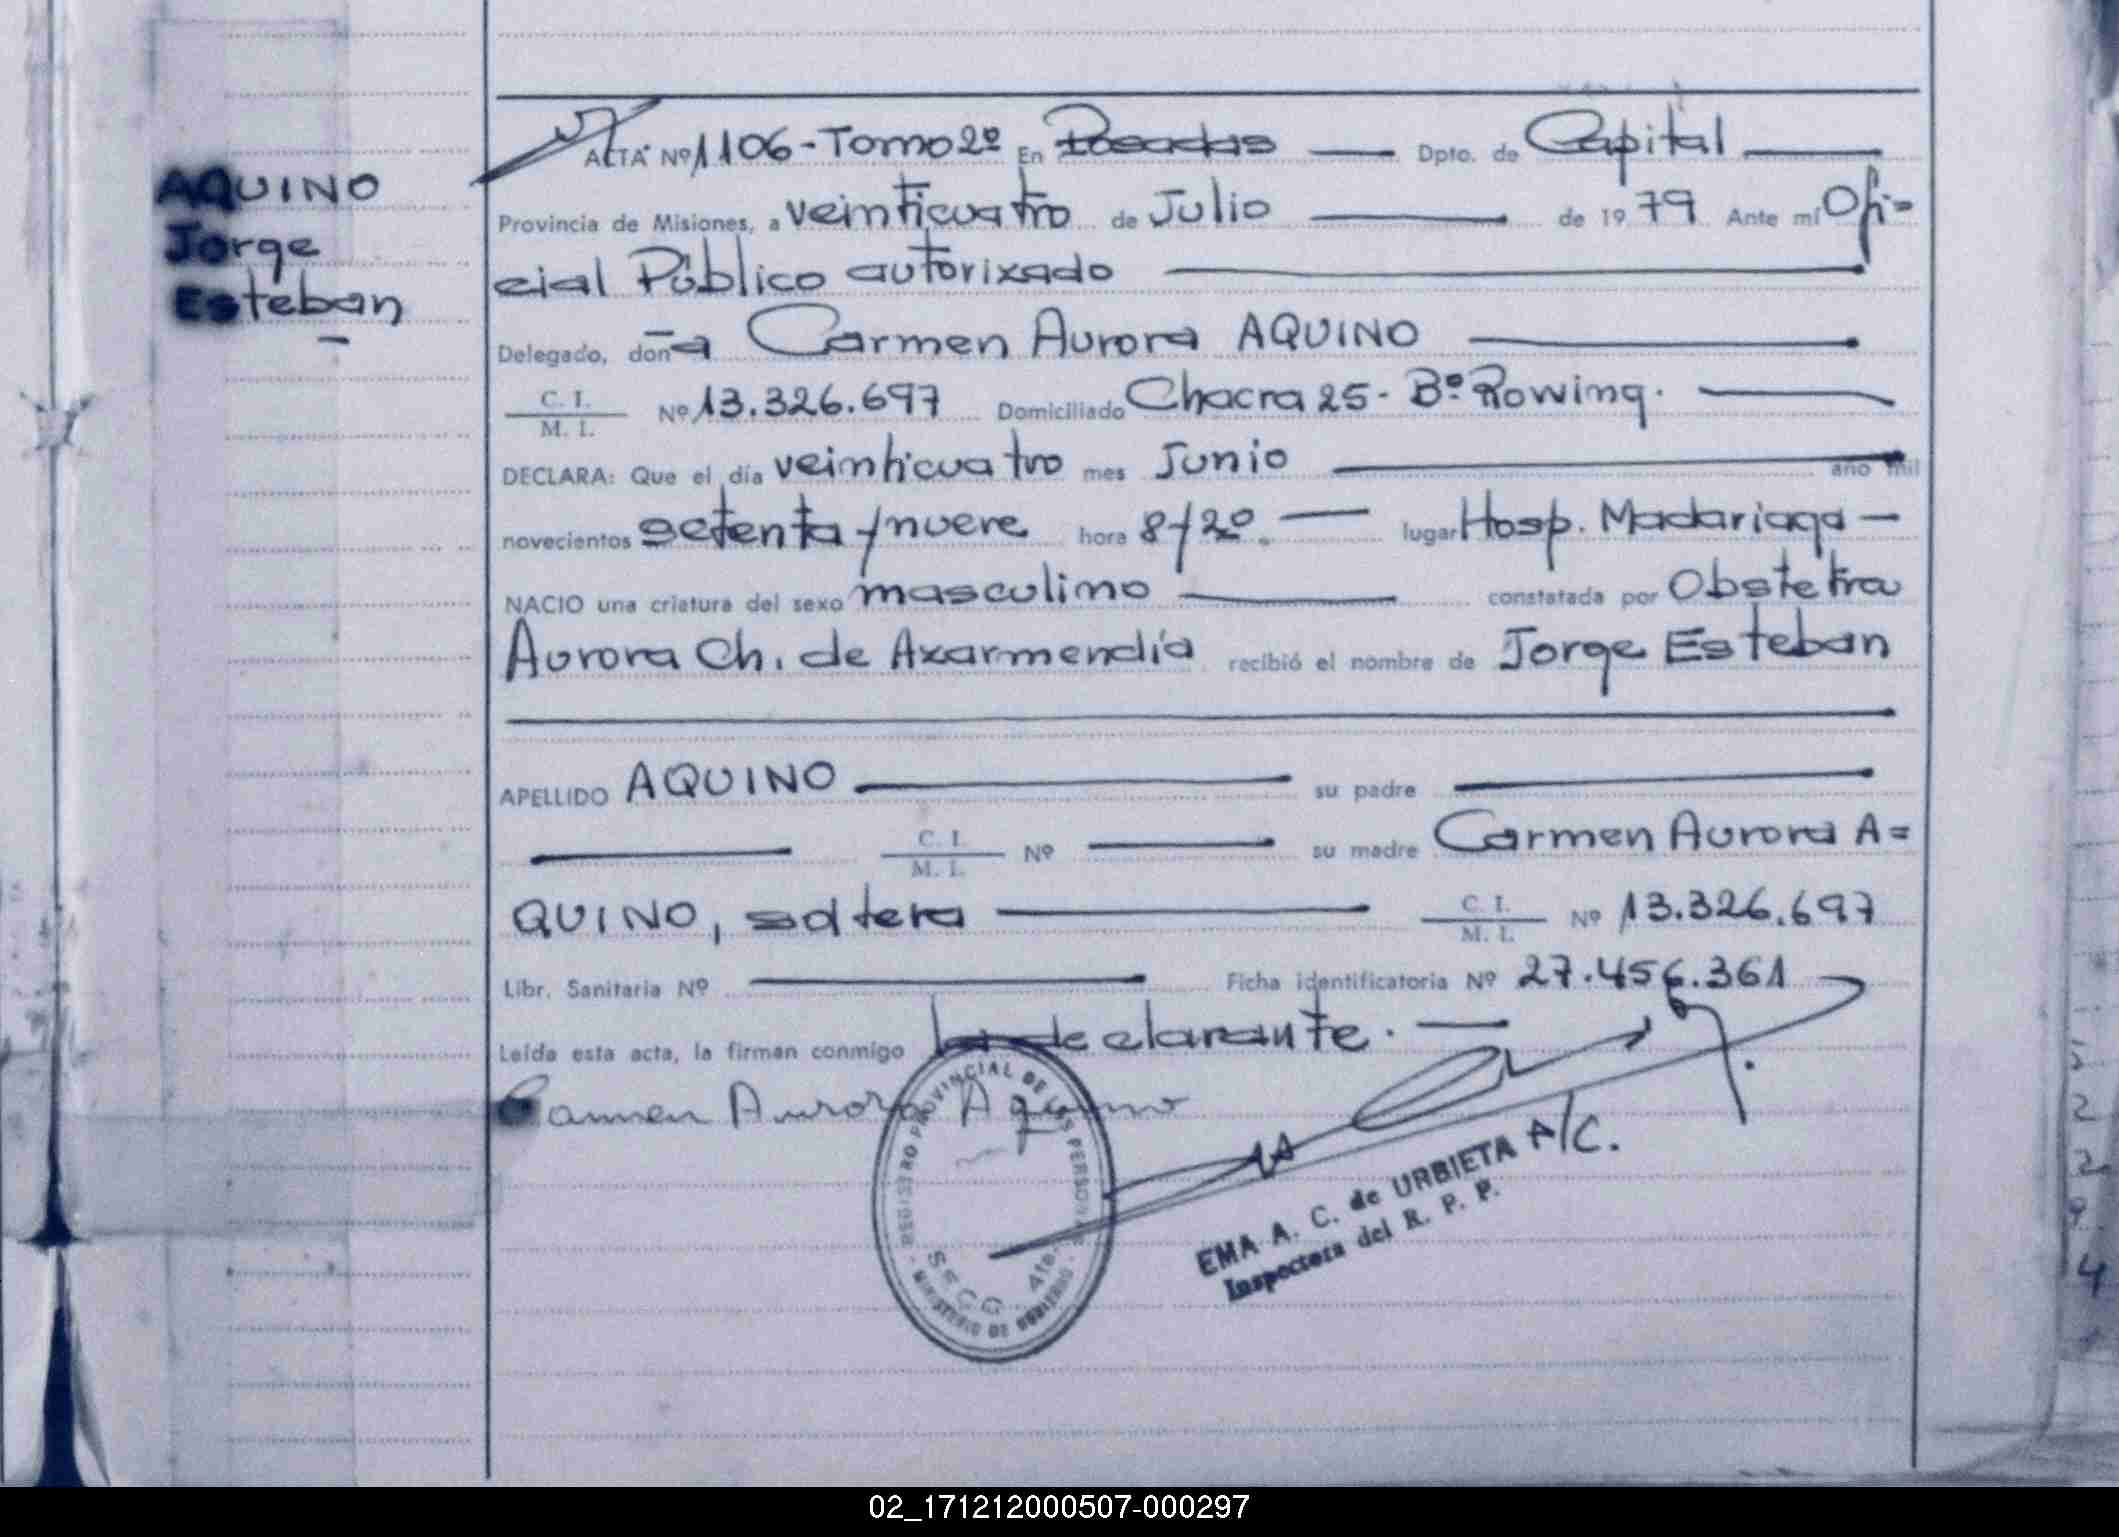 AQUINO
Jorge
Esteban
ACTA Nº 1106-Tomo 2º En Posadas Dpto. de Capital
Provincia de Misiones, a veinticuatro de Julio de 1979 Ante mí Ofi=
cial Público autorixado
Delegado, don a Carmen Aurora AQUINO
C. I.
M. I. Nº 13.326.697 Domiciliado Chacra 25- Bº Rowing.
DECLARA: Que el día veinticuatro mes Junio año mil
novecientos setenta y nueve hora 8y20. lugar Hosp. Madariaga
NACIO una criatura del sexo masculino constatada por Obstetra
Aurora Ch. de Axarmendía recibió el nombre de Jorge Esteban
APELLIDO AQUINO su padre
C. I.
M. I. Nº su madre Carmen Aurora A=
QUINO, soltera C. I.
M. I. Nº 13.326.697
Libr. Sanitaria Nº Ficha identificatoria Nº 27.456.361
Leída esta acta, la firman conmigo la declarante.
Carmen Aurora Aquino
REGISTRO PROVINCIAL DE LAS PERSONAS
MINISTERIO DE GOBIERNO
A/C.
EMA A. C. de URBIETA
Inspectora del R. P. P.
5
2
2
9
4
02_171212000507-000297